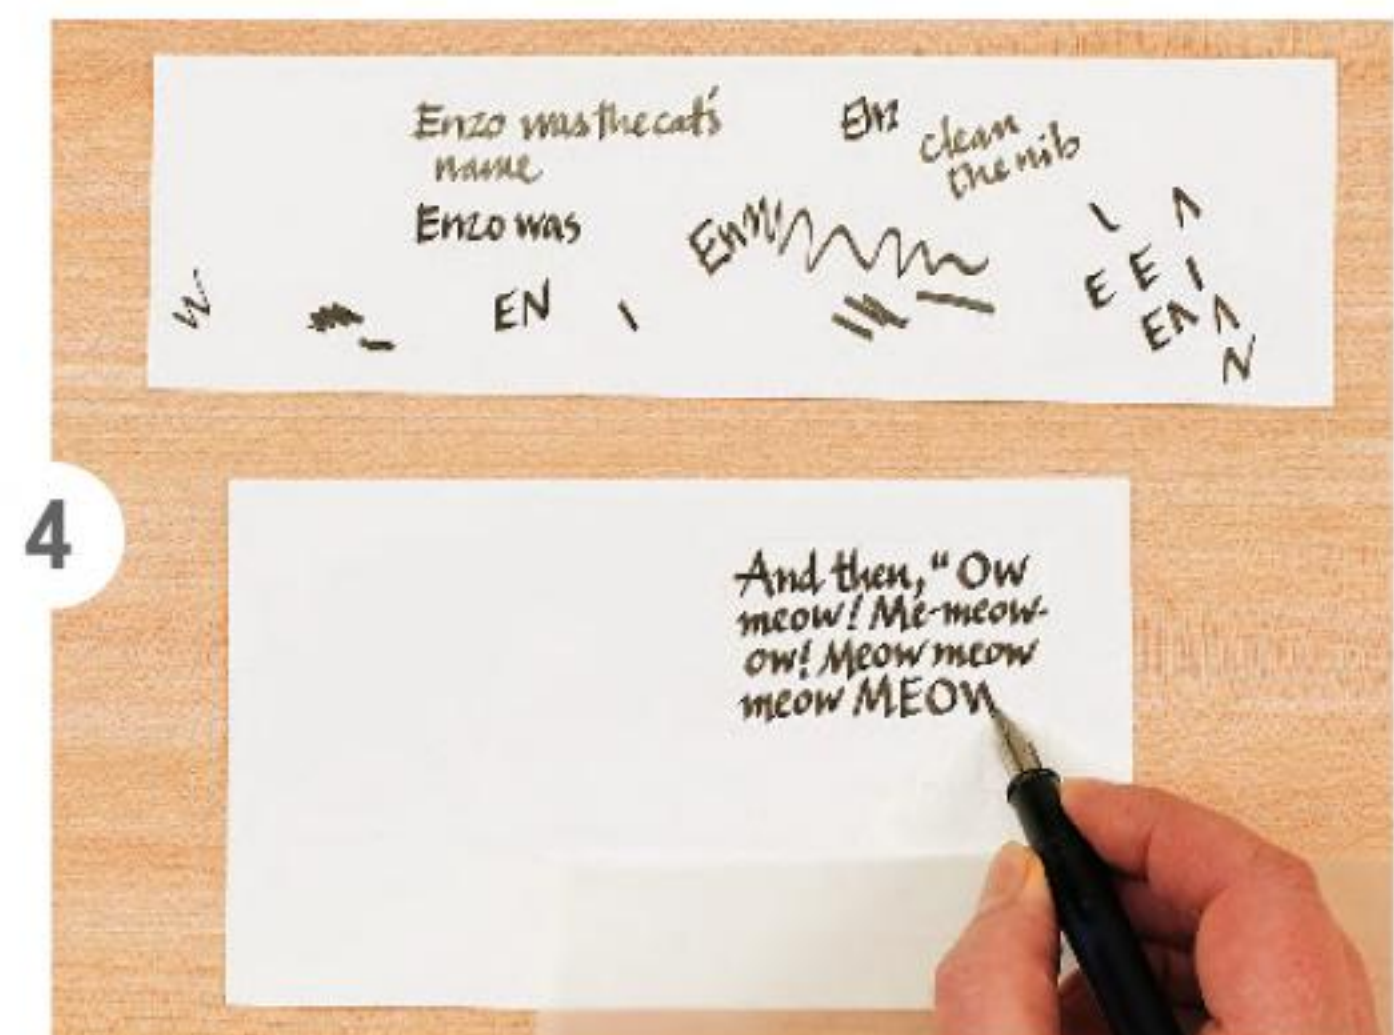 Enzo was the cat's
name
Enz
clean
the nib
Enzo was
Enn
EN
E E
EΛ
N
4
And then, "Ow
meow! Me-meow-
ow! Meow meow
meow MEOW